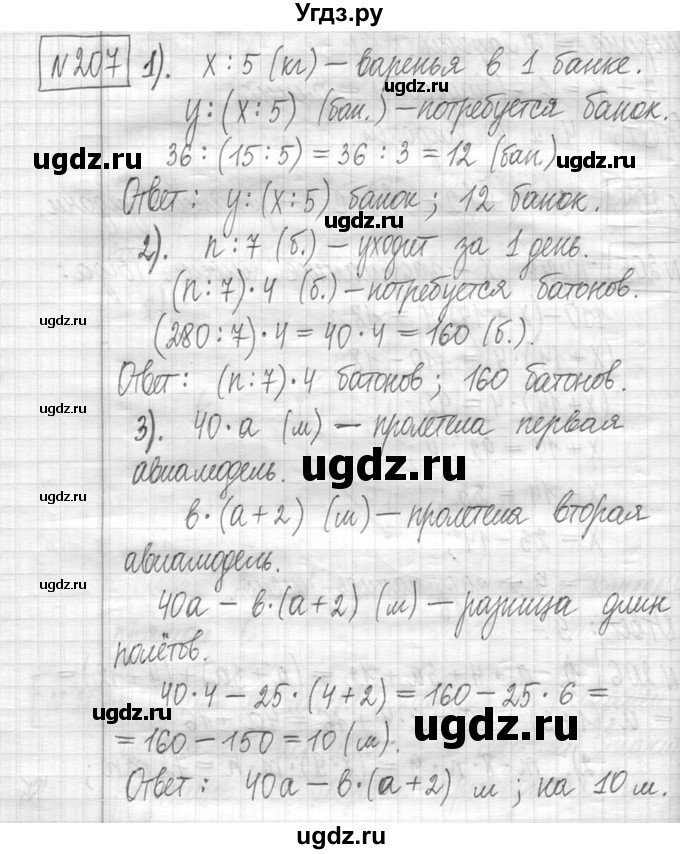 Угдз.ру
№207 1). x : 5 (кг) – варенья в 1 банке.
y : (x : 5) (бан.) – потребуется банок.
ugdz.ru
36 : (15 : 5) = 36 : 3 = 12 (бан.)
ugdz.ru ugdz.ru
Ответ: y : (x : 5) банок; 12 банок.
ugdz.ru
2). n : 7 (б.) – уходит за 1 день.
(n : 7) · 4 (б.) – потребуется батонов.
ugdz.ru
(280 : 7) · 4 = 40 · 4 = 160 (б.).
Ответ: (n : 7) · 4 батонов; 160 батонов.
ugdz.ru
3). 40 · a (м) – пролетела первая
авиамодель.
ugdz.ru
ugdz.ru
в · (a + 2) (м) – пролетела вторая
авиамодель.
ugdz.ru
40a – в · (a + 2) (м) – разница длин
полётов.
40 · 4 – 25 · (4 + 2) = 160 – 25 · 6 =
ugdz.ru
= 160 – 150 = 10 (м).
ugdz.ru
ugdz.ru
Ответ: 40a – в · (a + 2) м; на 10 м.
ugdz.ru